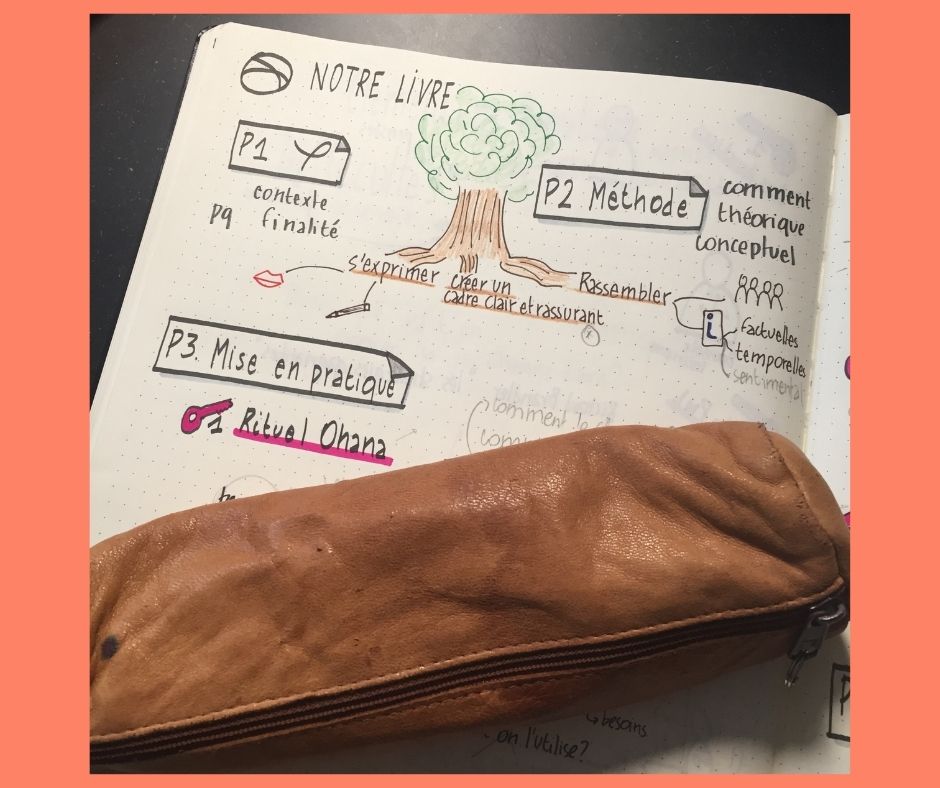 1
NOTRE LIVRE
P1 φ
contexte
pq finalité
P2 Méthode
comment
théorique
conceptuel
s'exprimer
créer un
cadre clair et rassurant
Rassembler
i
factuelles
temporelles
sentimental
P3. Mise en pratique
1 Rituel Ohana
comment le
besoins
on l'utilise?